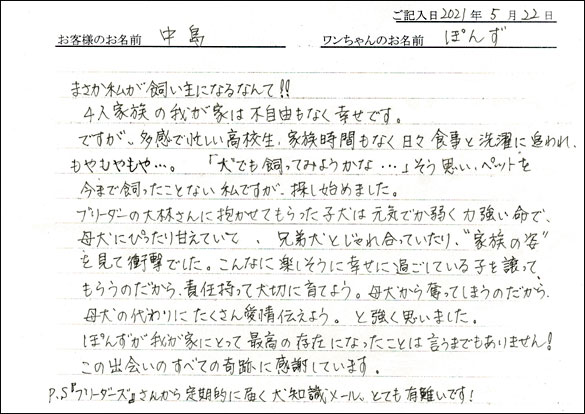 ご記入日 2021年 5月 22日
お客様のお名前 中島 ワンちゃんのお名前 ぽんず
まさか私が飼い主になるなんて!!
4人家族の我が家は不自由もなく幸せです。
ですが、多感で忙しい高校生、家族時間もなく日々食事と洗濯に追われ、
もやもやもや…。 「犬でも飼ってみようかな…」そう思い、ペットを
今まで飼ったことない私ですが、探し始めました。
ブリーダーの大林さんに抱かせてもらった子犬は元気でか弱く力強い命で、
母犬にぴったり甘えていて、兄弟犬とじゃれ合っていたり、"家族の姿"
を見て衝撃でした。こんなに楽しそうに幸せに過ごしている子を譲って
もらうのだから、責任持って大切に育てよう。母犬から奪ってしまうのだから、
母犬の代わりにたくさん愛情伝えよう。と強く思いました。
ぽんずが我が家にとって最高の存在になったことは言うまでもありません!
この出会いのすべての奇跡に感謝しています。
P.S『ブリーダーズ』さんから定期的に届く犬知識メール、とても有難いです!